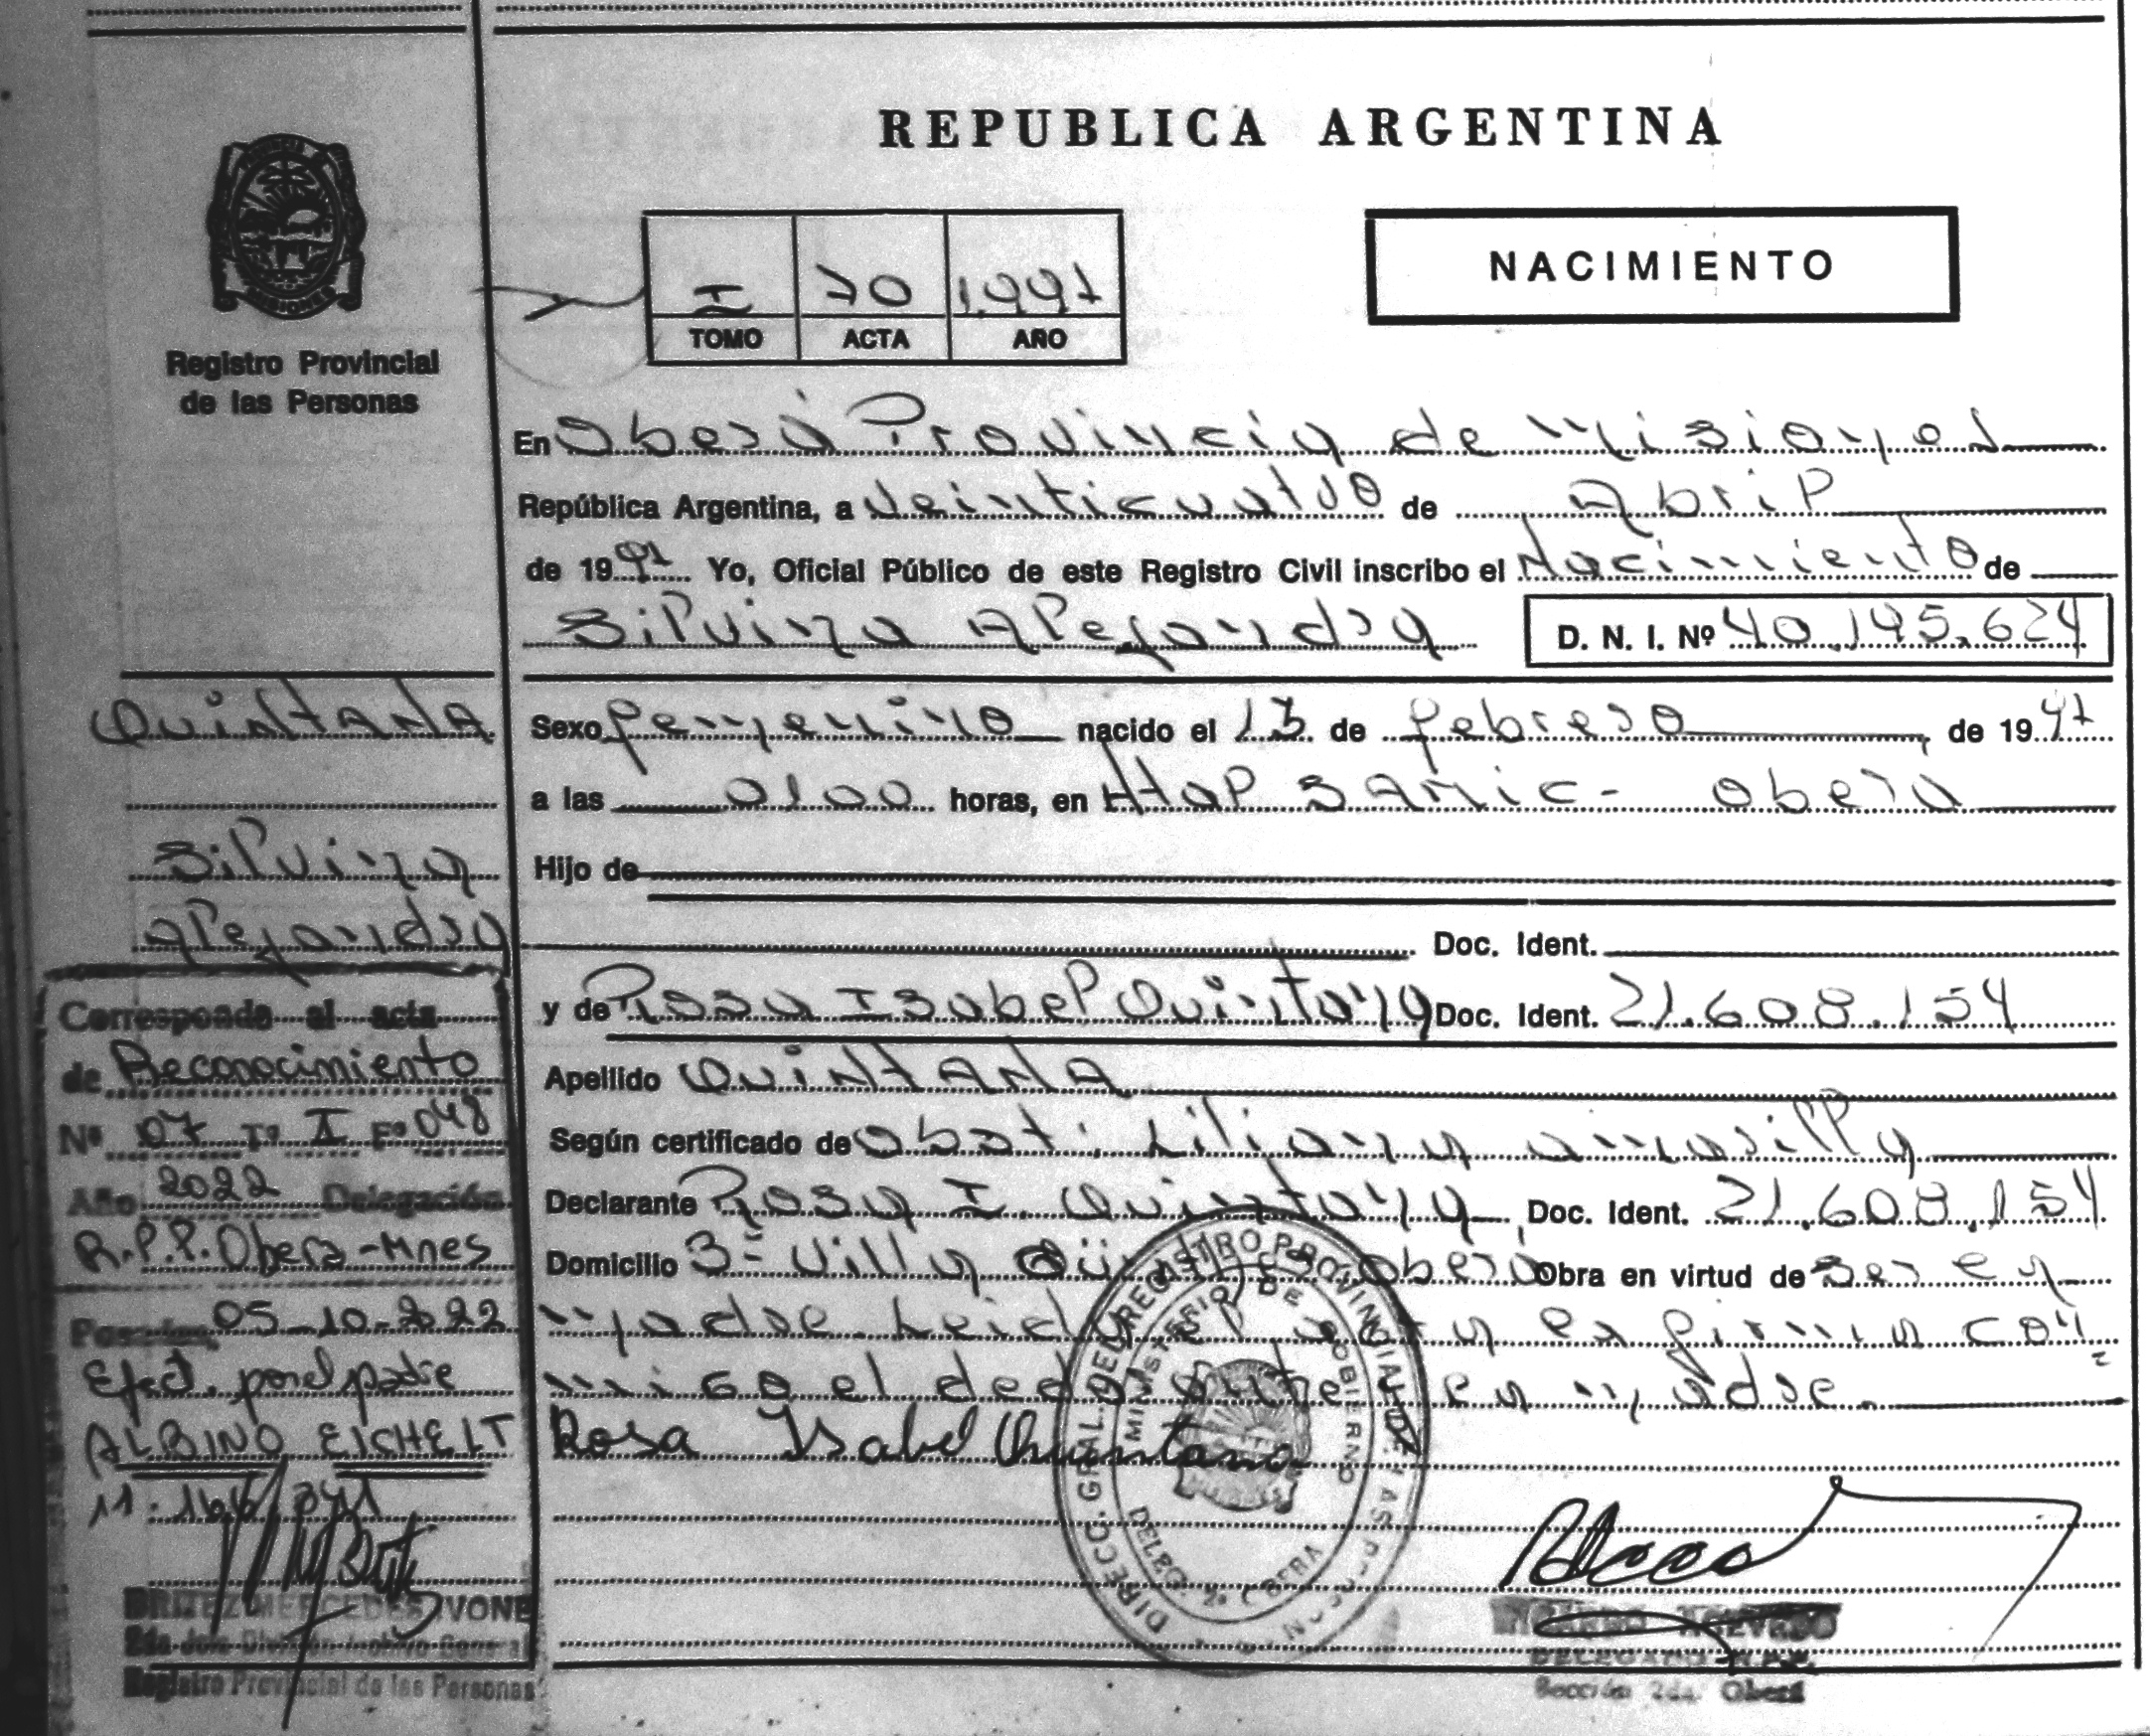 REPUBLICA ARGENTINA
NACIMIENTO
I 70 1.997
TOMO ACTA AÑO
Registro Provincial
de las Personas
En Oberá Provincia de Misiones
República Argentina, a Veinticuatro de Abril
de 1997 Yo, Oficial Público de este Registro Civil inscribo el Nacimiento de
Silvina Alejandra D. N. I. Nº 40.145.624
QuiNtANA
Silvina
Alejandra
Sexo femenino nacido el 13 de febrero de 1997
a las 0100 horas, en Htal SAMic - Oberá
Hijo de
Doc. Ident.
y de Rosa Isabel Quintana Doc. Ident. 21.608.154
Apellido QuiNtANA
Según certificado de Obst: Liliana
Declarante Rosa I. Quintana, Doc. Ident. 21.608.154
Domicilio 3- Villa Oberá Obra en virtud de ser la
madre. Leida el acta la firma con
migo el declarante la madre.
Rosa Isabel Quintana
Corresponde al acta
de Reconocimiento
Nº 07 Tº I Fº 048
Año 2022 Delegación
R.P.P. Obera-Mnes
05-10-2022
Efect. por el padre
ALBINO EICHELT
BRITEZ MERCEDES IVONE
2da Jefe División Archivo General
Registro Provincial de las Personas
DIRECC. GRAL. DEL REGISTRO PROVINCIAL DE LAS PERSONAS
MINISTERIO DE GOBIERNO
OBERA
ACEVEDO
DELEGADO R.P.P.
Sección 2da. Oberá